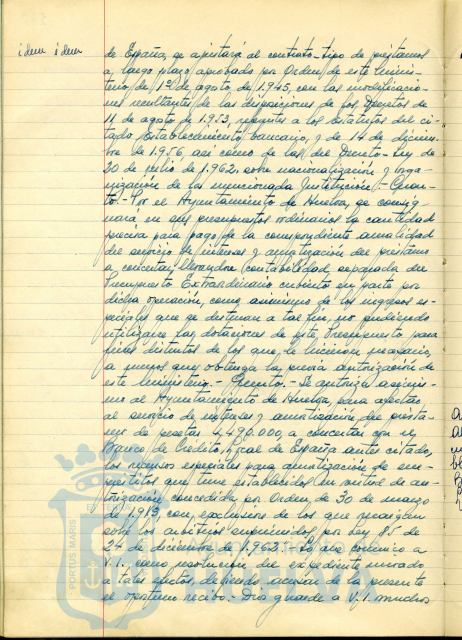 idem idem
de España, se ajustará al contrato-tipo de préstamos
a largo plazo aprobado por Orden de este Minis-
terio, de 1º de agosto de 1.945, con las modificacio-
nes resultantes de las disposiciones de los Decretos de
11 de agosto de 1.953, referentes a los Estatutos del ci-
tado Establecimiento bancario, y de 14 de diciem-
bre de 1.956, así como de las del Decreto-Ley de
20 de julio de 1.962, sobre nacionalización y orga-
nización de la mencionada Institución.- Quar-
to.- Por el Ayuntamiento de Huelva, se consig-
nará en sus presupuestos ordinarios la cantidad
precisa para pago de la correspondiente anualidad
del servicio de intereses y amortización del préstamo
a concertar, llevándose contabilidad separada del
Presupuesto Extraordinario cubierto en parte por
dicha operación, como asimismo de los ingresos es-
peciales que se destinan a tal fin, no pudiendo
utilizarse las dotaciones de este Presupuesto para
fines distintos de los que le hicieron necesario,
a menos que obtenga la previa autorización de
este Ministerio.- Quinto.- Se autoriza asimis-
mo al Ayuntamiento de Huelva, para afectar
al servicio de intereses y amortización del présta-
mo de pesetas 4.490.000, a concertar con el
Banco de Crédito Local de España antes citado,
los recursos especiales para amortización de em-
préstitos que tiene establecidos en virtud de au-
torización concedida por Orden de 30 de marzo
de 1.943, con exclusión de los que recaigan
sobre los arbitrios suprimidos por Ley 85 de
24 de diciembre de 1.962.- Lo que comunico a
V.I. como resolución del expediente incoado
a tales efectos, debiendo acusar de la presente
el oportuno recibo.- Dios guarde a V.I. muchos
PORTUS MARIS